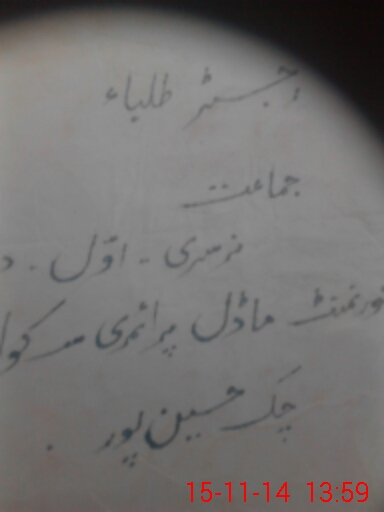 رجسٹر طلباء
جماعت
نرسری - اوّل - د
ورنمنٹ ماڈل پرائمری سکول
چک حسین پور
15-11-14 13:59